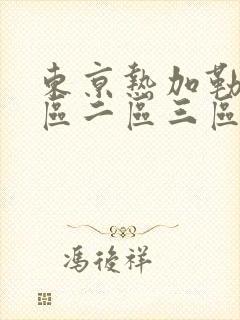 東京熱加勒
區二區三區
馮後祥